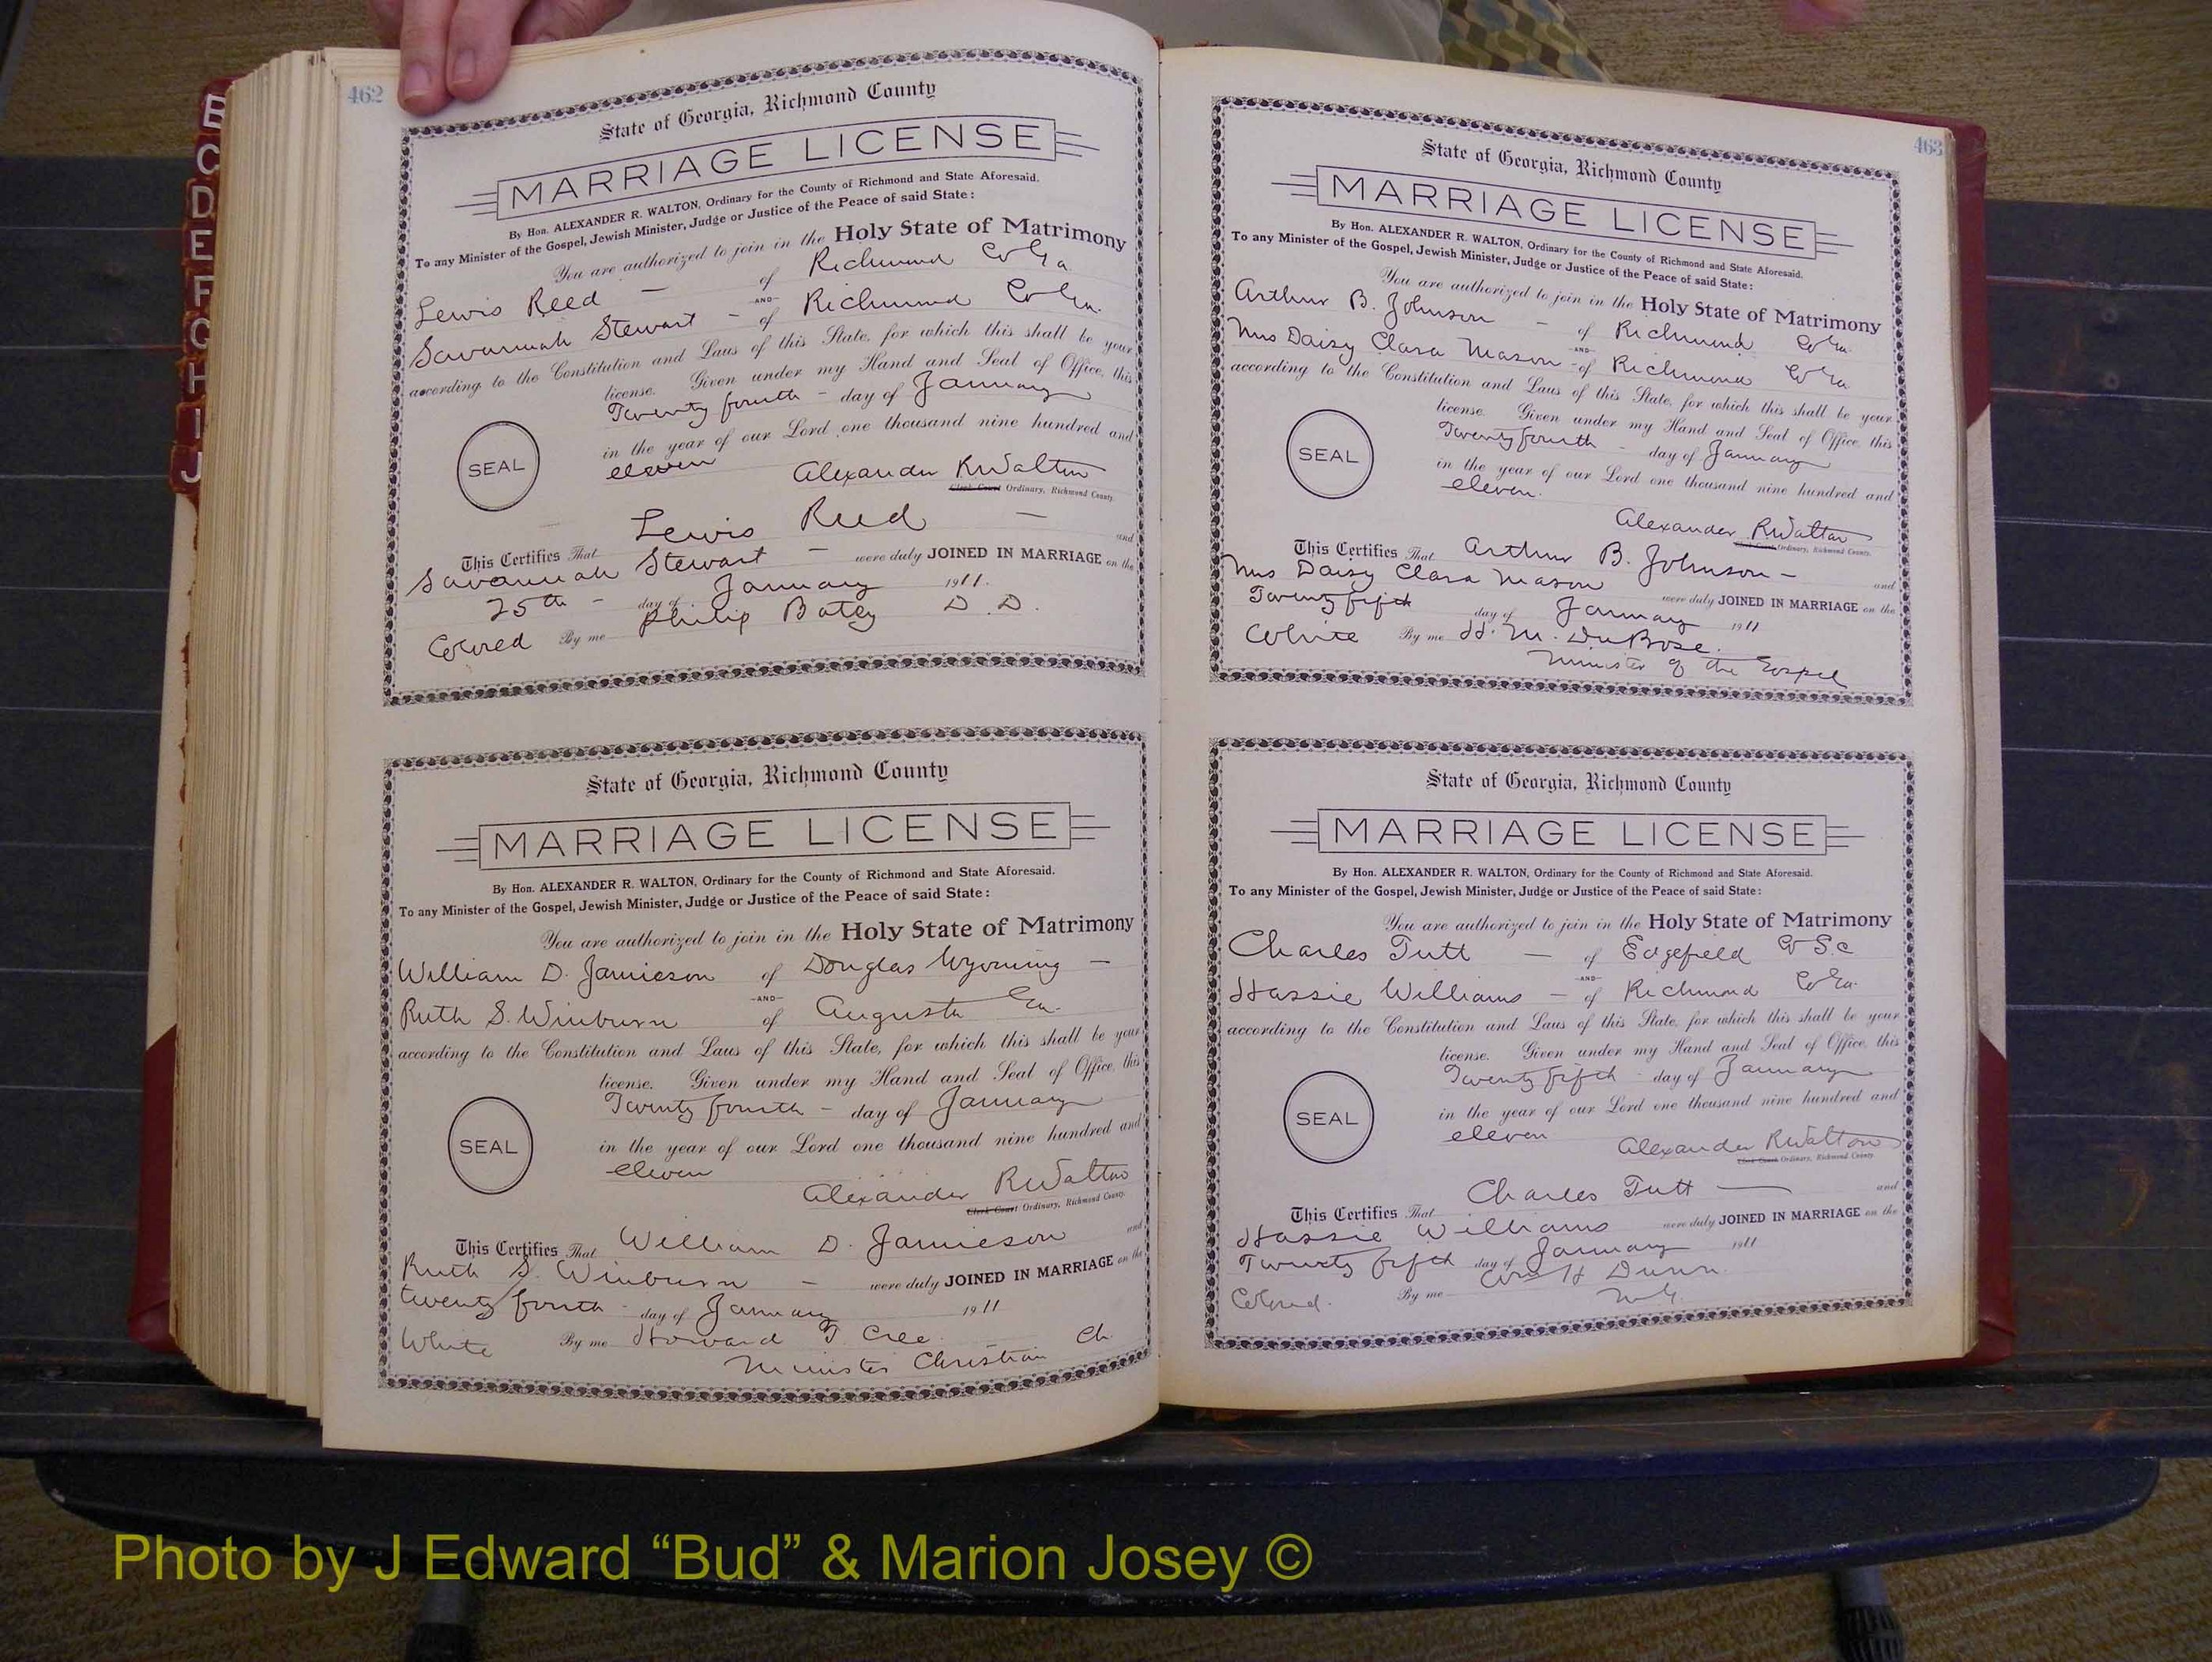 B
C
D
E
F
G
H
I
J
462
State of Georgia, Richmond County
MARRIAGE LICENSE
By Hon. ALEXANDER R. WALTON, Ordinary for the County of Richmond and State Aforesaid.
To any Minister of the Gospel, Jewish Minister, Judge or Justice of the Peace of said State:
You are authorized to join in the Holy State of Matrimony
Lewis Reed — of Richmond Co Ga
-AND-
Savannah Stewart - of Richmond Co Ga.
according to the Constitution and Laws of this State, for which this shall be your
license. Given under my Hand and Seal of Office, this
Twenty fourth - day of January
in the year of our Lord one thousand nine hundred and
SEAL
eleven
Alexander R Walton
Clerk Court Ordinary, Richmond County.
This Certifies That Lewis Reed — and
Savannah Stewart — were duly JOINED IN MARRIAGE on the
25th - day of January 1911.
Colored By me Philip Batey D. D.
State of Georgia, Richmond County
MARRIAGE LICENSE
By Hon. ALEXANDER R. WALTON, Ordinary for the County of Richmond and State Aforesaid.
To any Minister of the Gospel, Jewish Minister, Judge or Justice of the Peace of said State:
You are authorized to join in the Holy State of Matrimony
William D. Jamieson of Douglas Wyoming —
-AND-
Ruth S. Winburn of Augusta Ga.
according to the Constitution and Laws of this State, for which this shall be your
license. Given under my Hand and Seal of Office, this
Twenty fourth - day of January
SEAL
in the year of our Lord one thousand nine hundred and
eleven
Alexander R Walton
Clerk Court Ordinary, Richmond County.
This Certifies That William D. Jamieson and
Ruth S. Winburn — were duly JOINED IN MARRIAGE on the
twenty fourth - day of January 1911
White By me Howard T. Cree. Ch
Minister Christian
463
State of Georgia, Richmond County
MARRIAGE LICENSE
By Hon. ALEXANDER R. WALTON, Ordinary for the County of Richmond and State Aforesaid.
To any Minister of the Gospel, Jewish Minister, Judge or Justice of the Peace of said State:
You are authorized to join in the Holy State of Matrimony
Arthur B. Johnson — of Richmond Co Ga.
-AND-
Mrs Daisy Clara Mason - of Richmond Co Ga
according to the Constitution and Laws of this State, for which this shall be your
license. Given under my Hand and Seal of Office, this
Twenty fourth - day of January
SEAL
in the year of our Lord one thousand nine hundred and
eleven.
Alexander R Walton
Clerk Court Ordinary, Richmond County.
This Certifies That Arthur B. Johnson — and
Mrs Daisy Clara Mason were duly JOINED IN MARRIAGE on the
Twenty fifth day of January 1911
White By me H. M. DuBose.
Minister of the Gospel
State of Georgia, Richmond County
MARRIAGE LICENSE
By Hon. ALEXANDER R. WALTON, Ordinary for the County of Richmond and State Aforesaid.
To any Minister of the Gospel, Jewish Minister, Judge or Justice of the Peace of said State:
You are authorized to join in the Holy State of Matrimony
Charles Tutt — of Edgefield Co S.C
-AND-
Hassie Williams — of Richmond Co Ga.
according to the Constitution and Laws of this State, for which this shall be your
license. Given under my Hand and Seal of Office, this
Twenty fifth - day of January
SEAL
in the year of our Lord one thousand nine hundred and
eleven
Alexander R Walton
Clerk Court Ordinary, Richmond County.
This Certifies That Charles Tutt — and
Hassie Williams were duly JOINED IN MARRIAGE on the
Twenty fifth day of January 1911
Colored. By me Wm H Dunn.
M.G.
Photo by J Edward “Bud” & Marion Josey ©